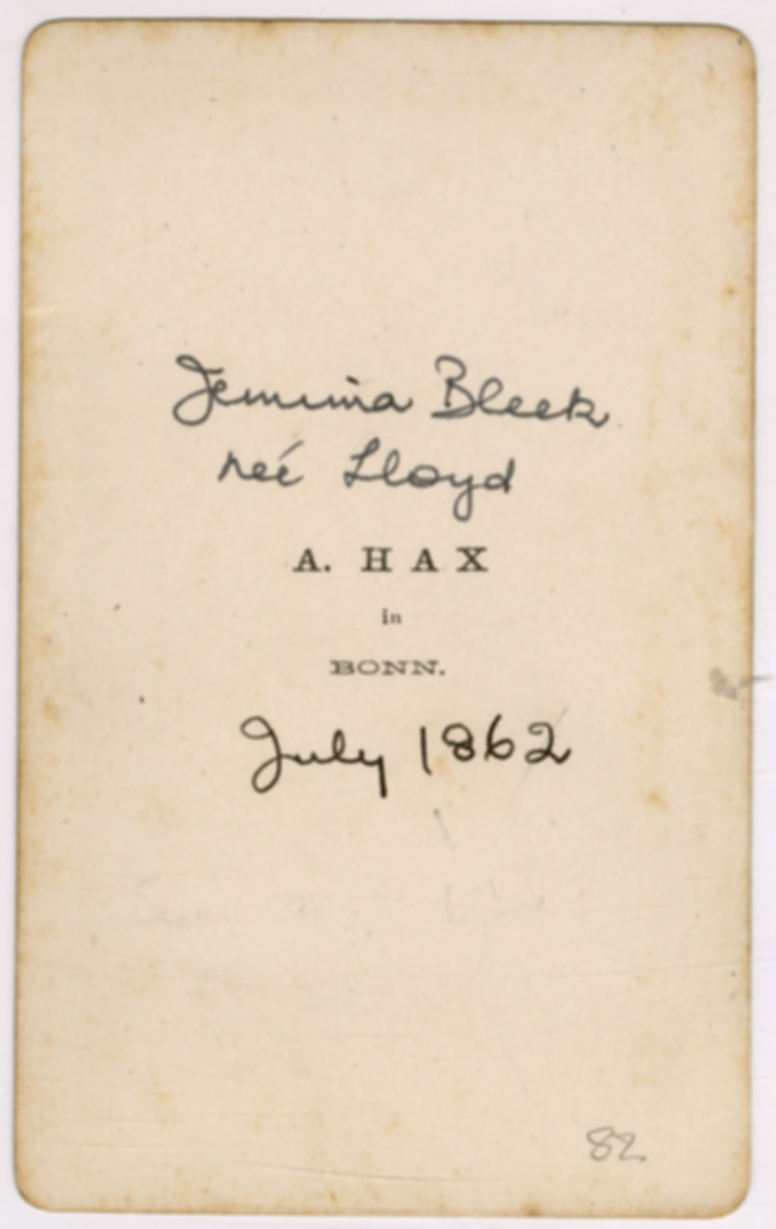 Jemima Bleek
neé Lloyd
A. HAX
in
BONN.
July 1862
82